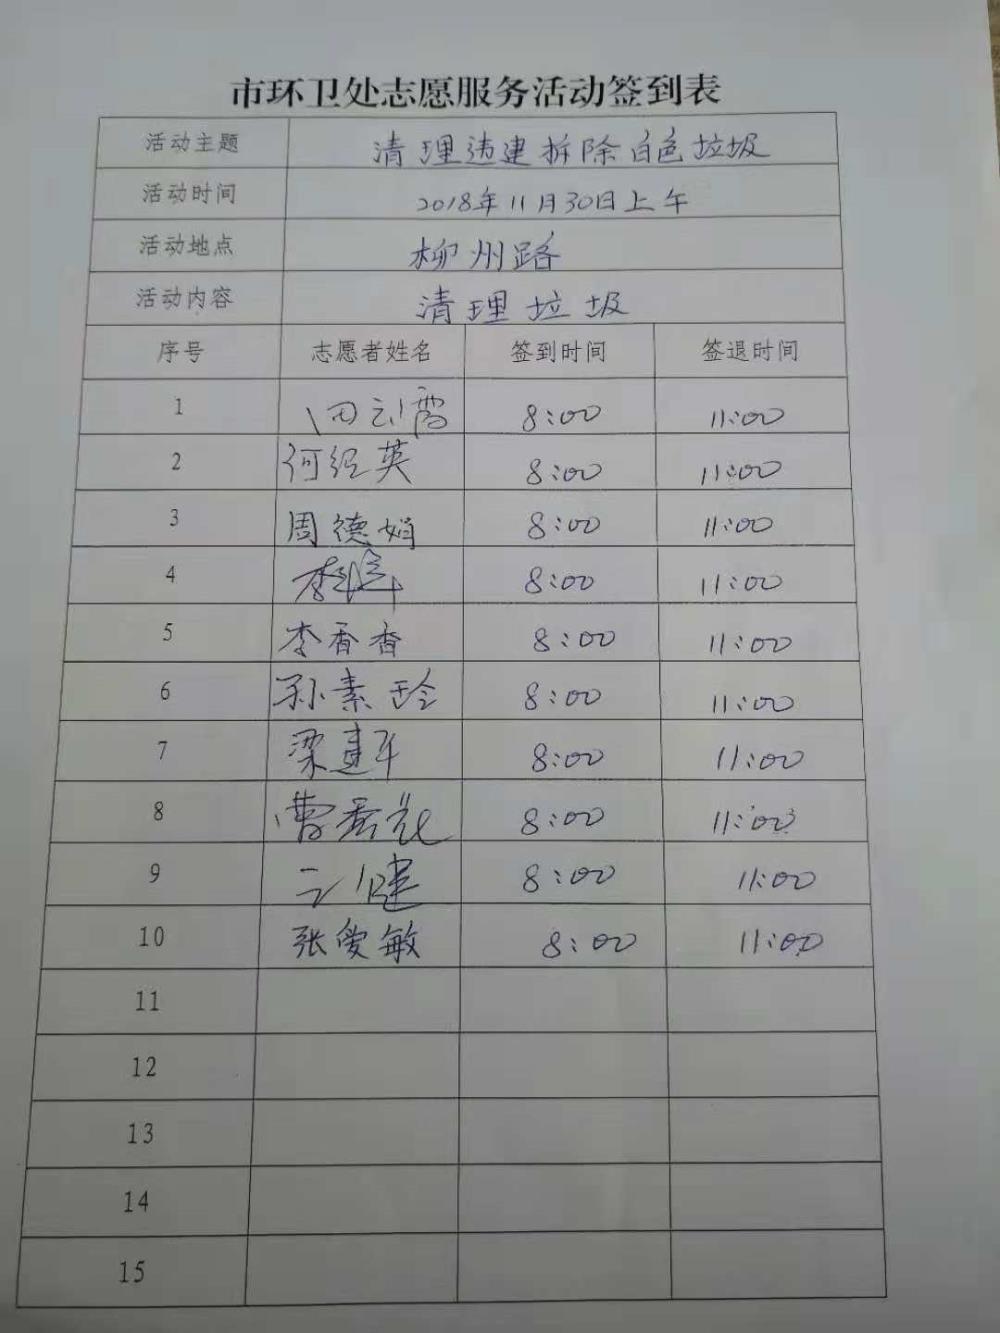 市环卫处志愿服务活动签到表
活动主题 清理违建拆除白色垃圾
活动时间 2018年11月30日上午
活动地点 柳州路
活动内容 清理垃圾
序号 志愿者姓名 签到时间 签退时间
1 8:00 11:00
2 何经英 8:00 11:00
3 周德娟 8:00 11:00
4 李 8:00 11:00
5 李香香 8:00 11:00
6 孙素玲 8:00 11:00
7 梁建军 8:00 11:00
8 曹 8:00 11:00
9 8:00 11:00
10 张爱敏 8:00 11:00
11
12
13
14
15